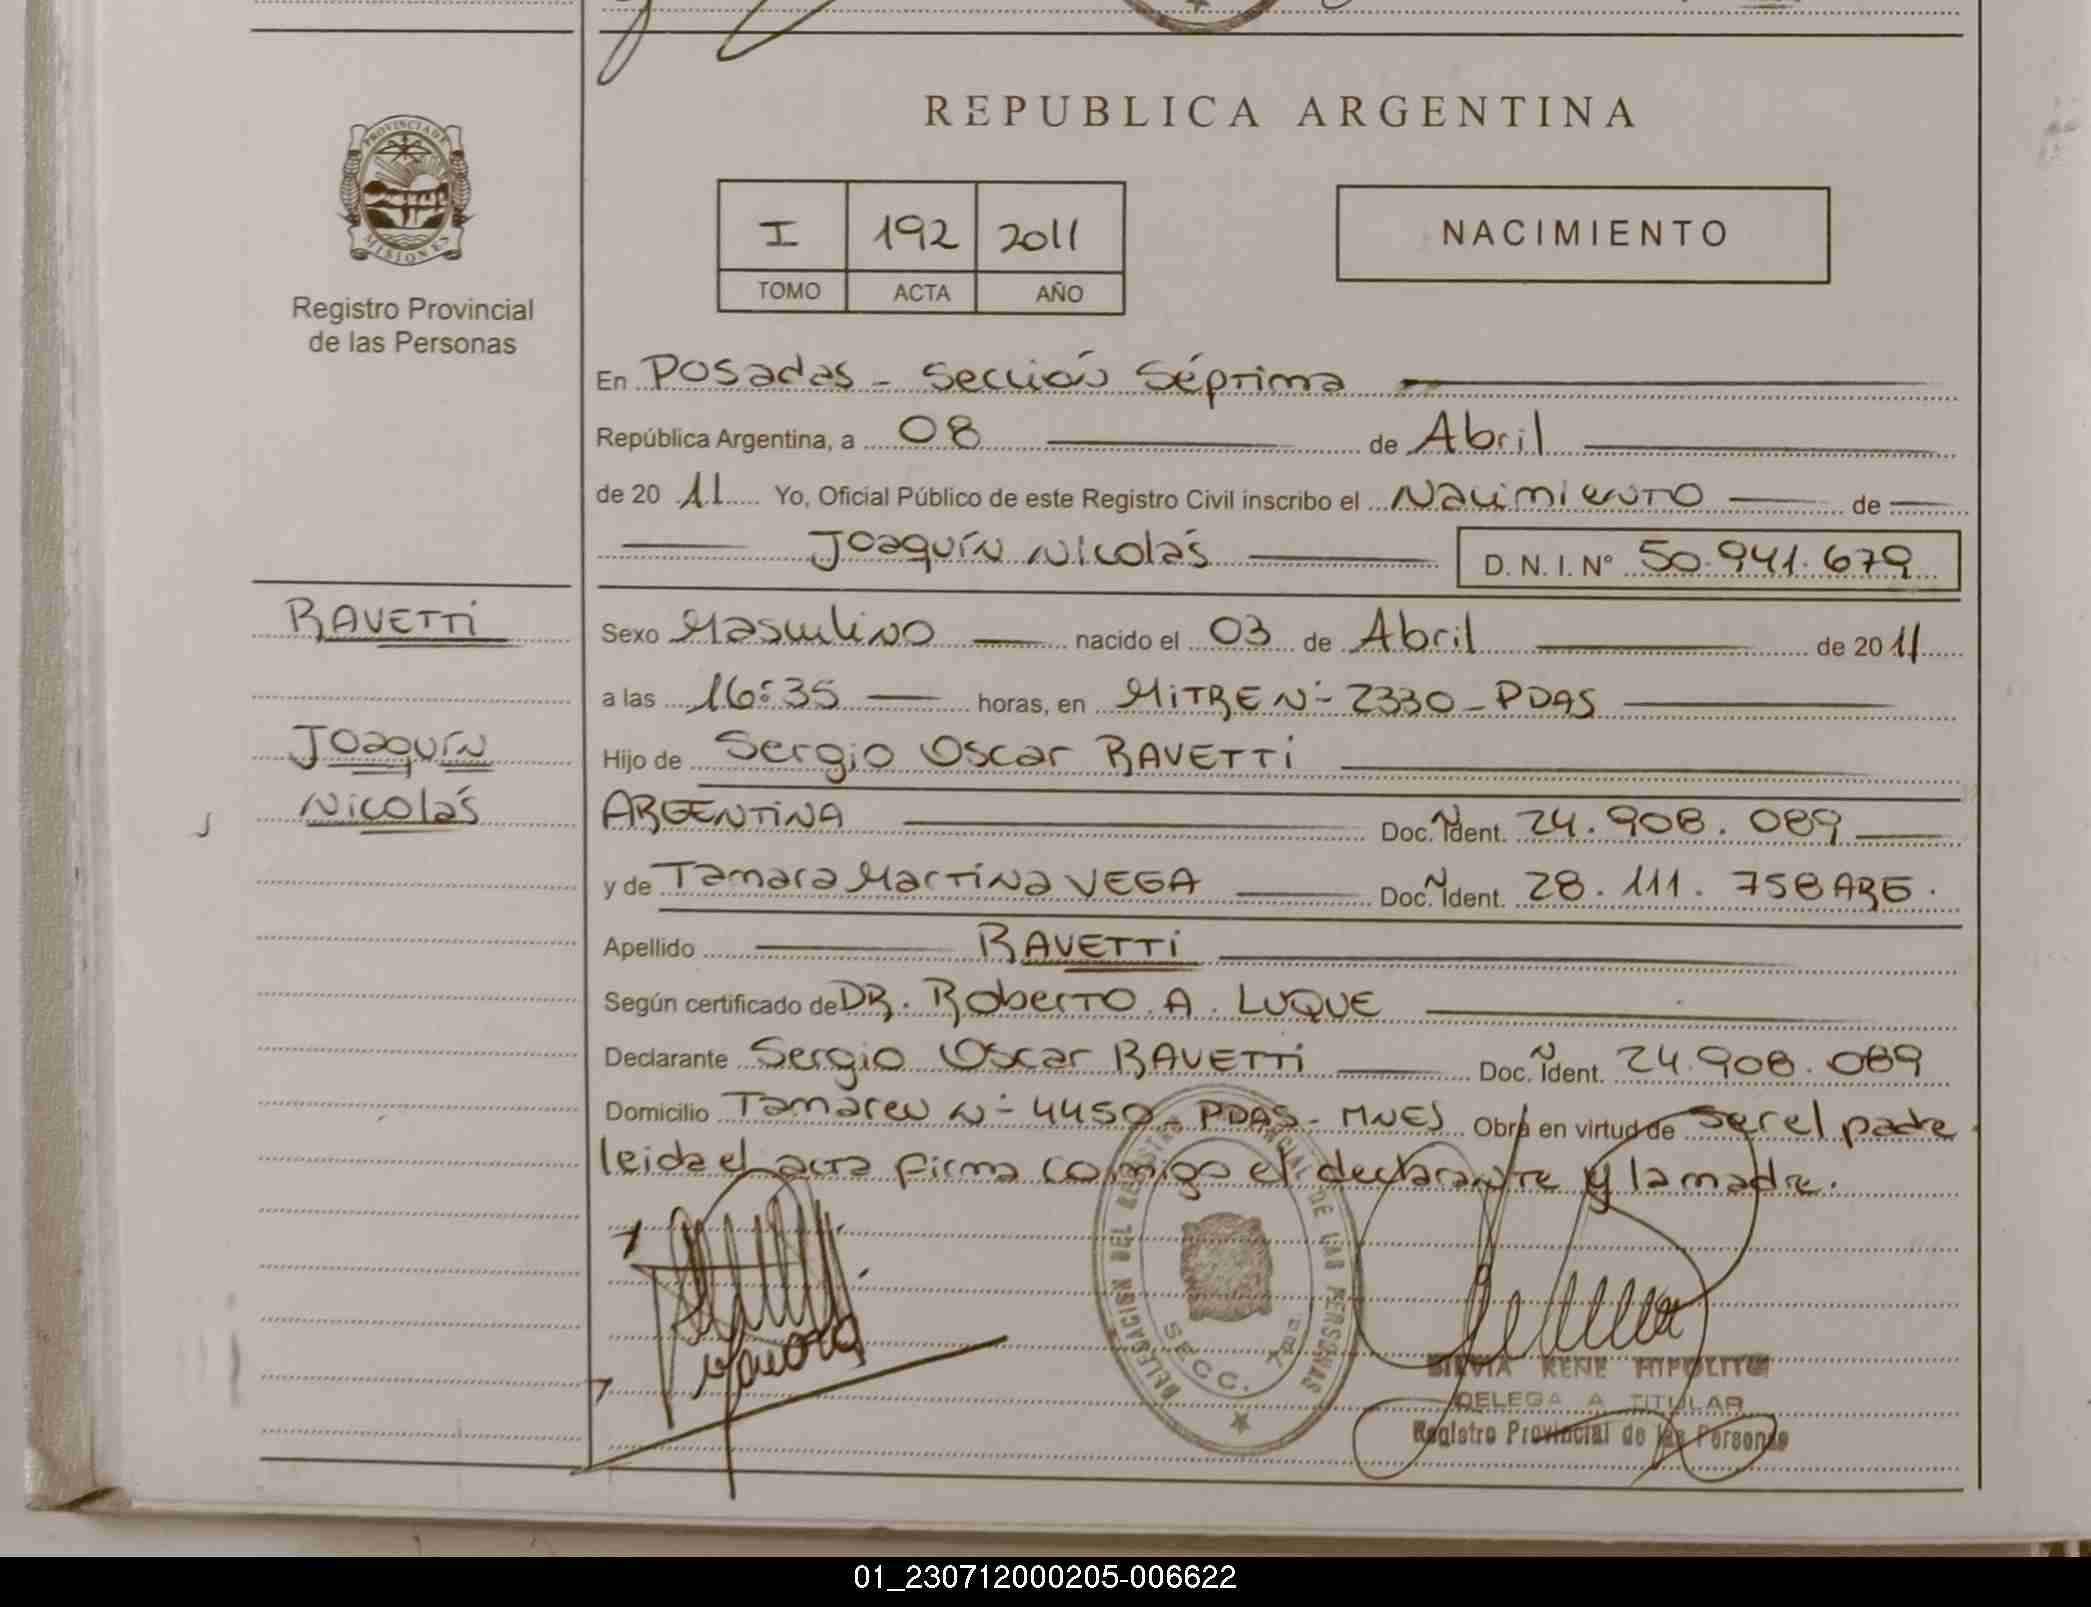 REPUBLICA ARGENTINA
PROVINCIA DE
MISIONES
Registro Provincial
de las Personas
I 192 2011
TOMO ACTA AÑO
NACIMIENTO
En Posadas - Sección Séptima
República Argentina, a 08 de Abril
de 20 11 Yo, Oficial Público de este Registro Civil inscribo el Nacimiento de
Joaquín Nicolás D. N. I. Nº 50.941.679
RAVETTi
Sexo Masculino nacido el 03 de Abril de 20 11
a las 16:35 horas, en MiTRE Nº 2330 - PDAS
Joaquín
Hijo de Sergio Oscar RAVETTi
Nicolás
ARGENTiNA Doc. Ident. 24.908.089
y de Tamara Martina VEGA Doc. Ident. 28.111.758 ARG.
Apellido RAVETTi
Según certificado de DR. Roberto A. LUQUE
Declarante Sergio Oscar RAVETTi Doc. Ident. 24.908.089
Domicilio Tamareu Nº 4450 - PDAS - MNES Obra en virtud de ser el padre
leida el acta firma conmigo el declarante y la madre.
DELEGACION DEL REGISTRO PROVINCIAL DE LAS PERSONAS
SECC. 7ma.
SILVIA RENE HIPOLITO
DELEGADA TITULAR
Registro Provincial de las Personas
01_230712000205-006622